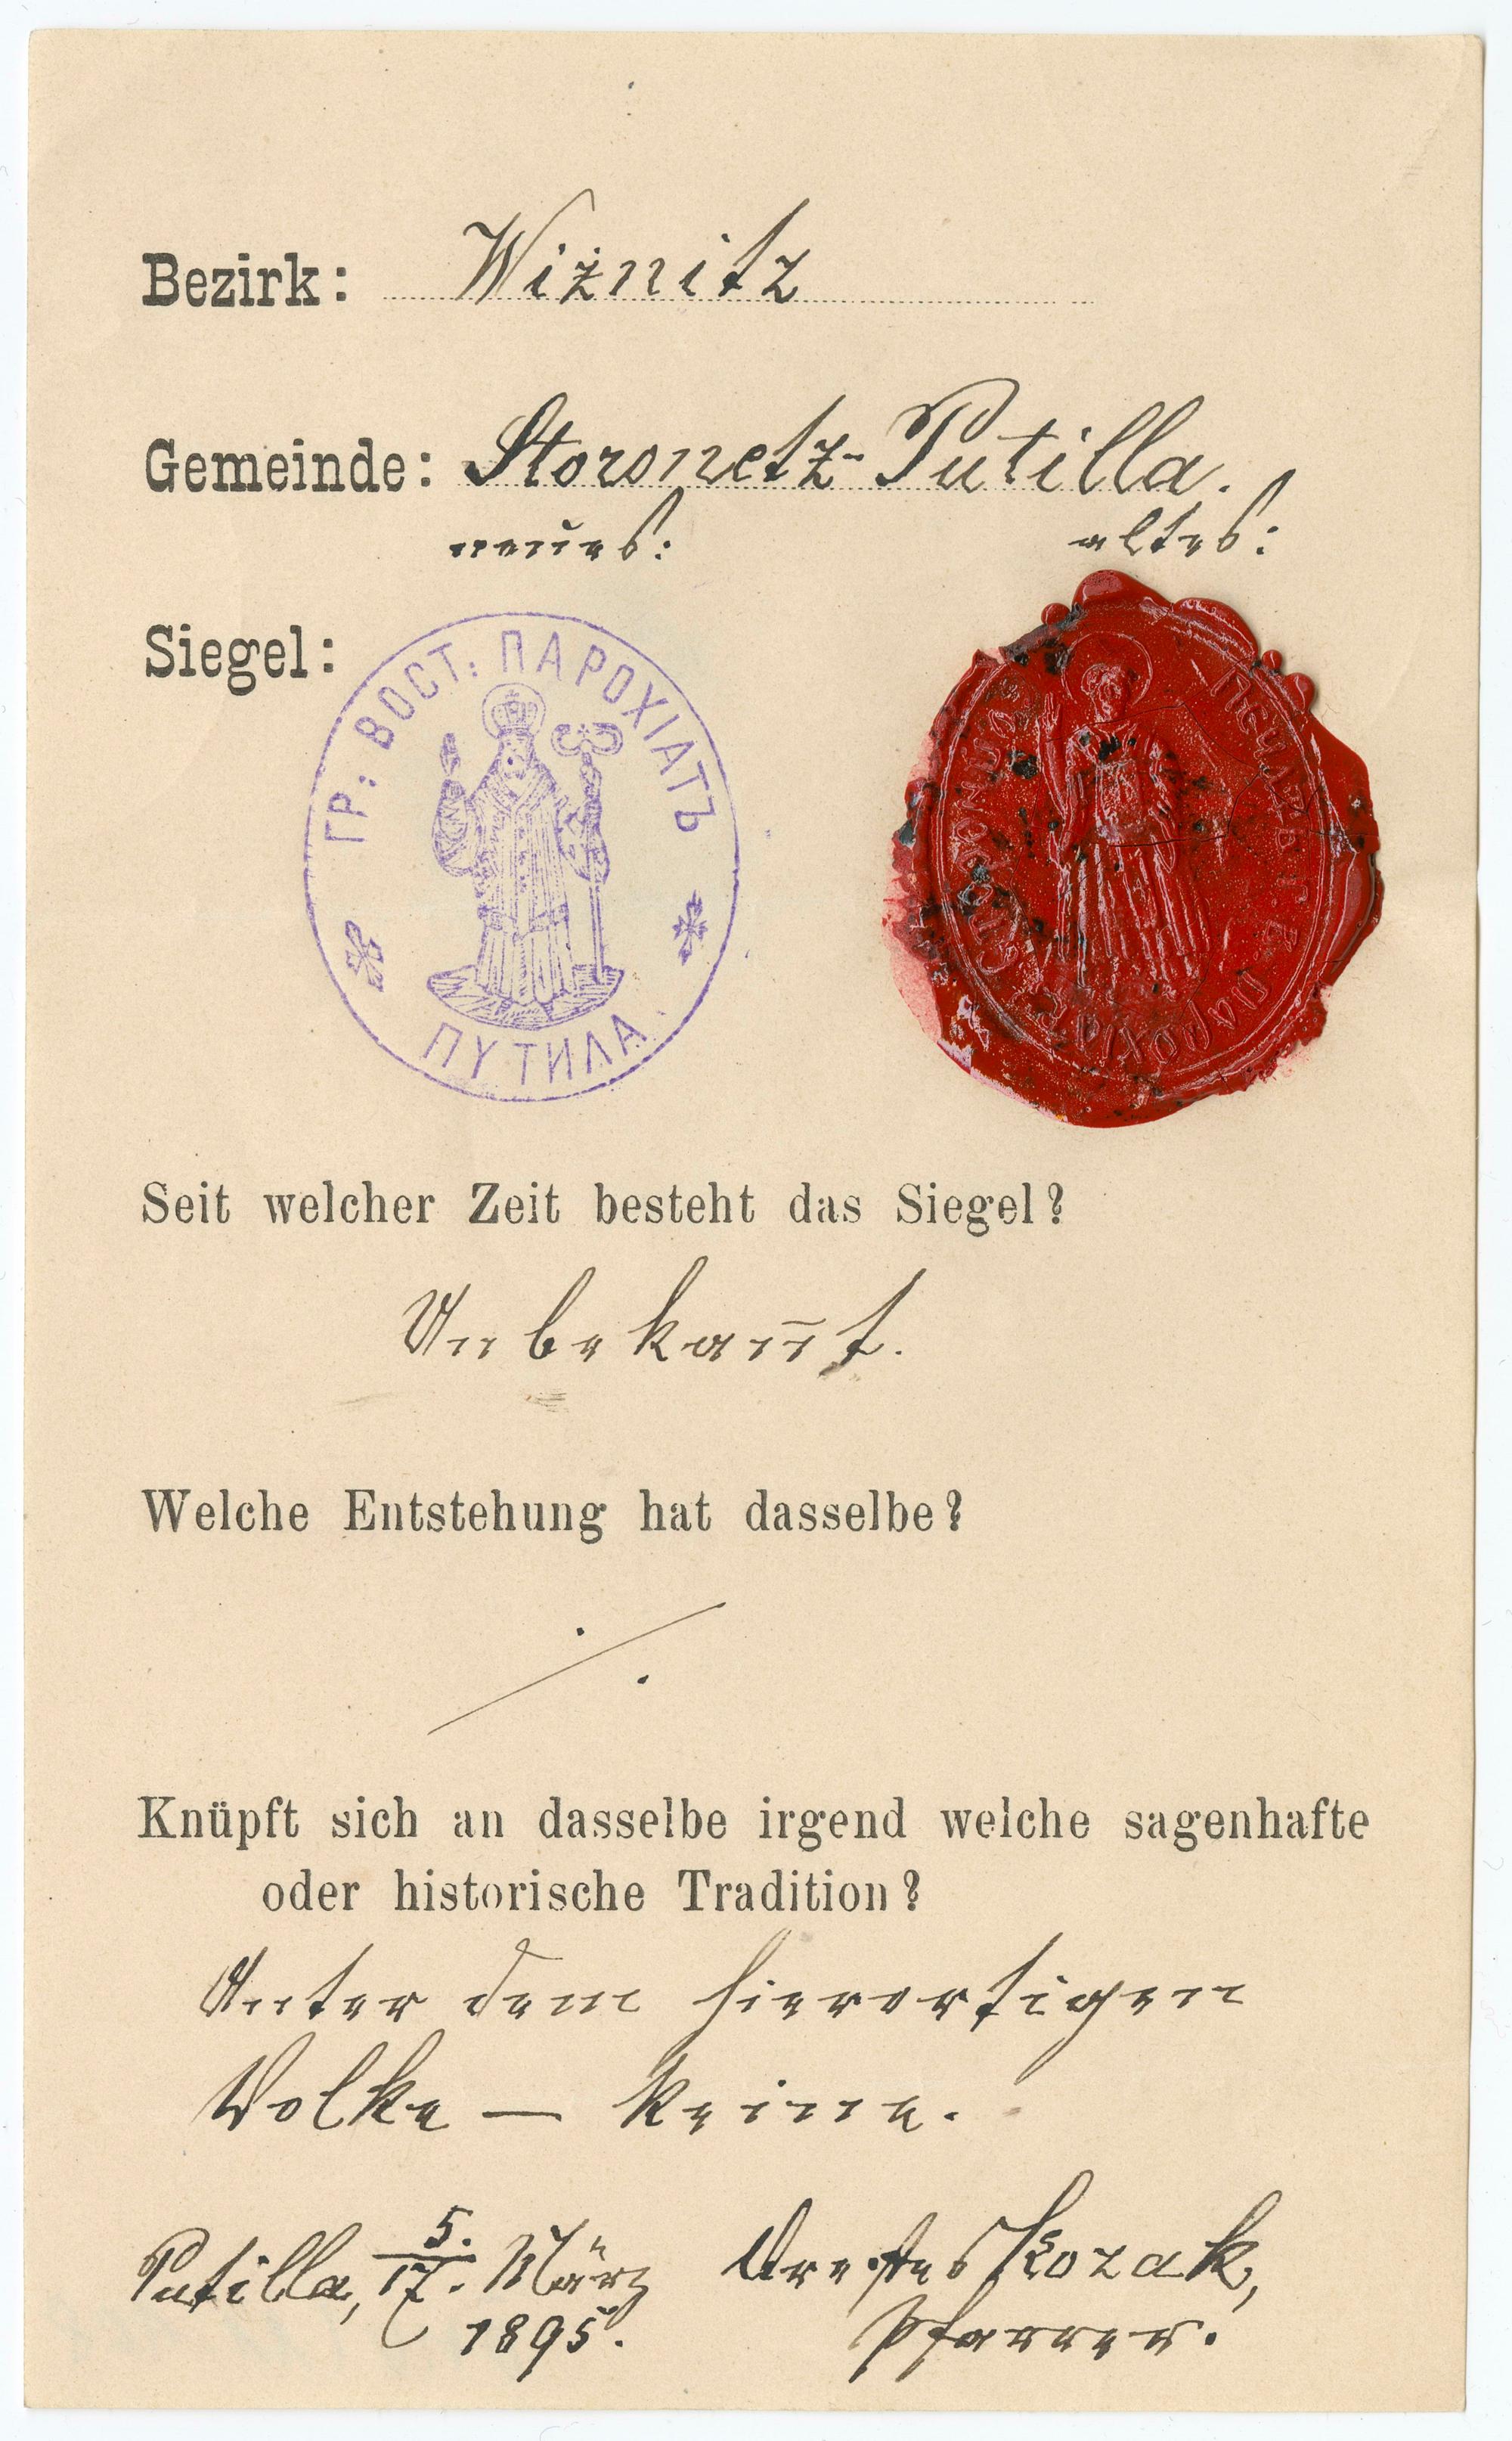 Bezirk: Wiżnitz
Gemeinde: Storonetz-Putilla.
neues: altes:
Siegel:
ГР: ВОСТ: ПАРОХІАТЪ
ПУТИЛА
Seit welcher Zeit besteht das Siegel?
Unbekan̄t.
Welche Entstehung hat dasselbe?
./.
Knüpft sich an dasselbe irgend welche sagenhafte
oder historische Tradition?
Unter dem hierortigen
Volke — keine.
Putilla, 5./17. März Orestes Kozak,
1895. Pfarrer.